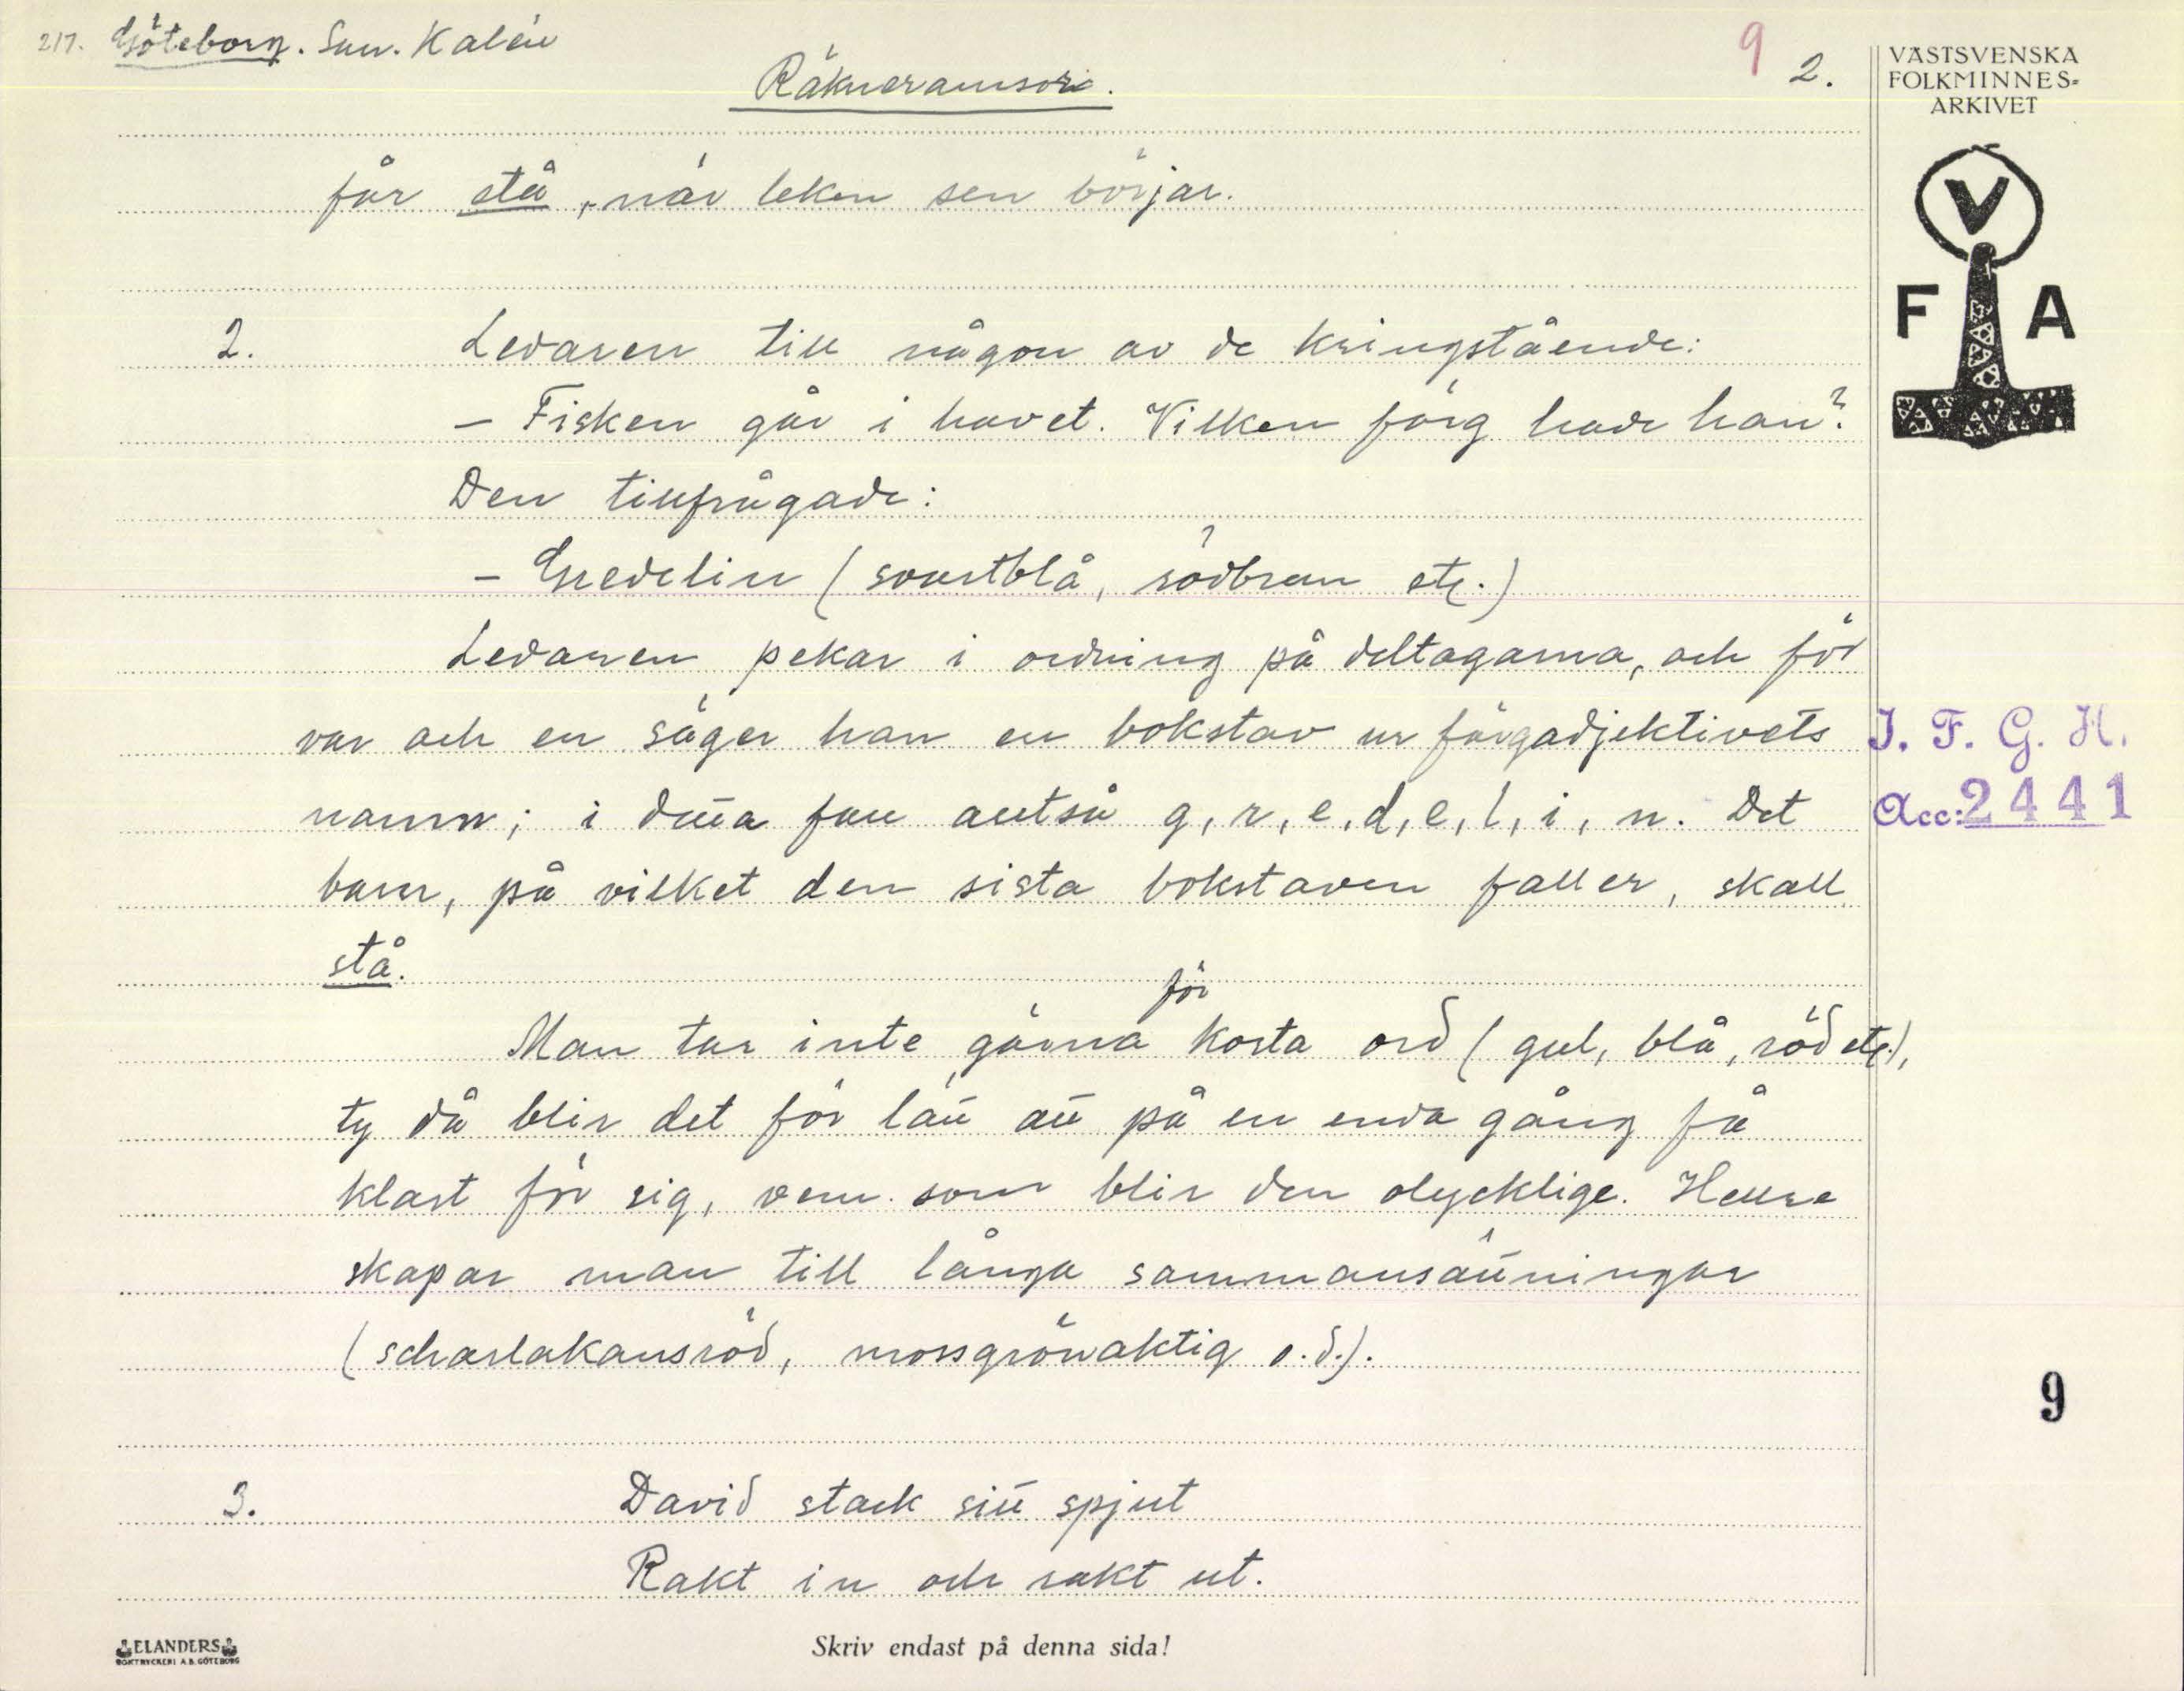 217. Göteborg. Sam. Kalén
Räkneramsor.
9 2.
VÄSTSVENSKA
FOLKMINNES=
ARKIVET
V
F A
får stå, när leken sen börjar.
2. Ledaren till någon av de kringstående:
– Fisken går i havet. Vilken färg hade han?
Den tillfrågade:
– Gredelin (svartblå, rödbrun etc.)
Ledaren pekar i ordning på deltagarna, och för
var och en säger han en bokstav ur färgadjektivets
namn; i detta fall alltså g, r, e, d, e, l, i, n. Det
barn, på vilket den sista bokstaven faller, skall
stå.
Man tar inte gärna för korta ord (gul, blå, röd etc.),
ty då blir det för lätt att på en enda gång få
klart för sig, vem som blir den olycklige. Hellre
skapar man till långa sammansättningar
(scharlakansröd, mossgrönaktig o.d.).
3. David stack sitt spjut
Rakt in och rakt ut.
I. F. G. H.
Acc: 2441
9
ELANDERS
BOKTRYCKERI A.B. GÖTEBORG
Skriv endast på denna sida!